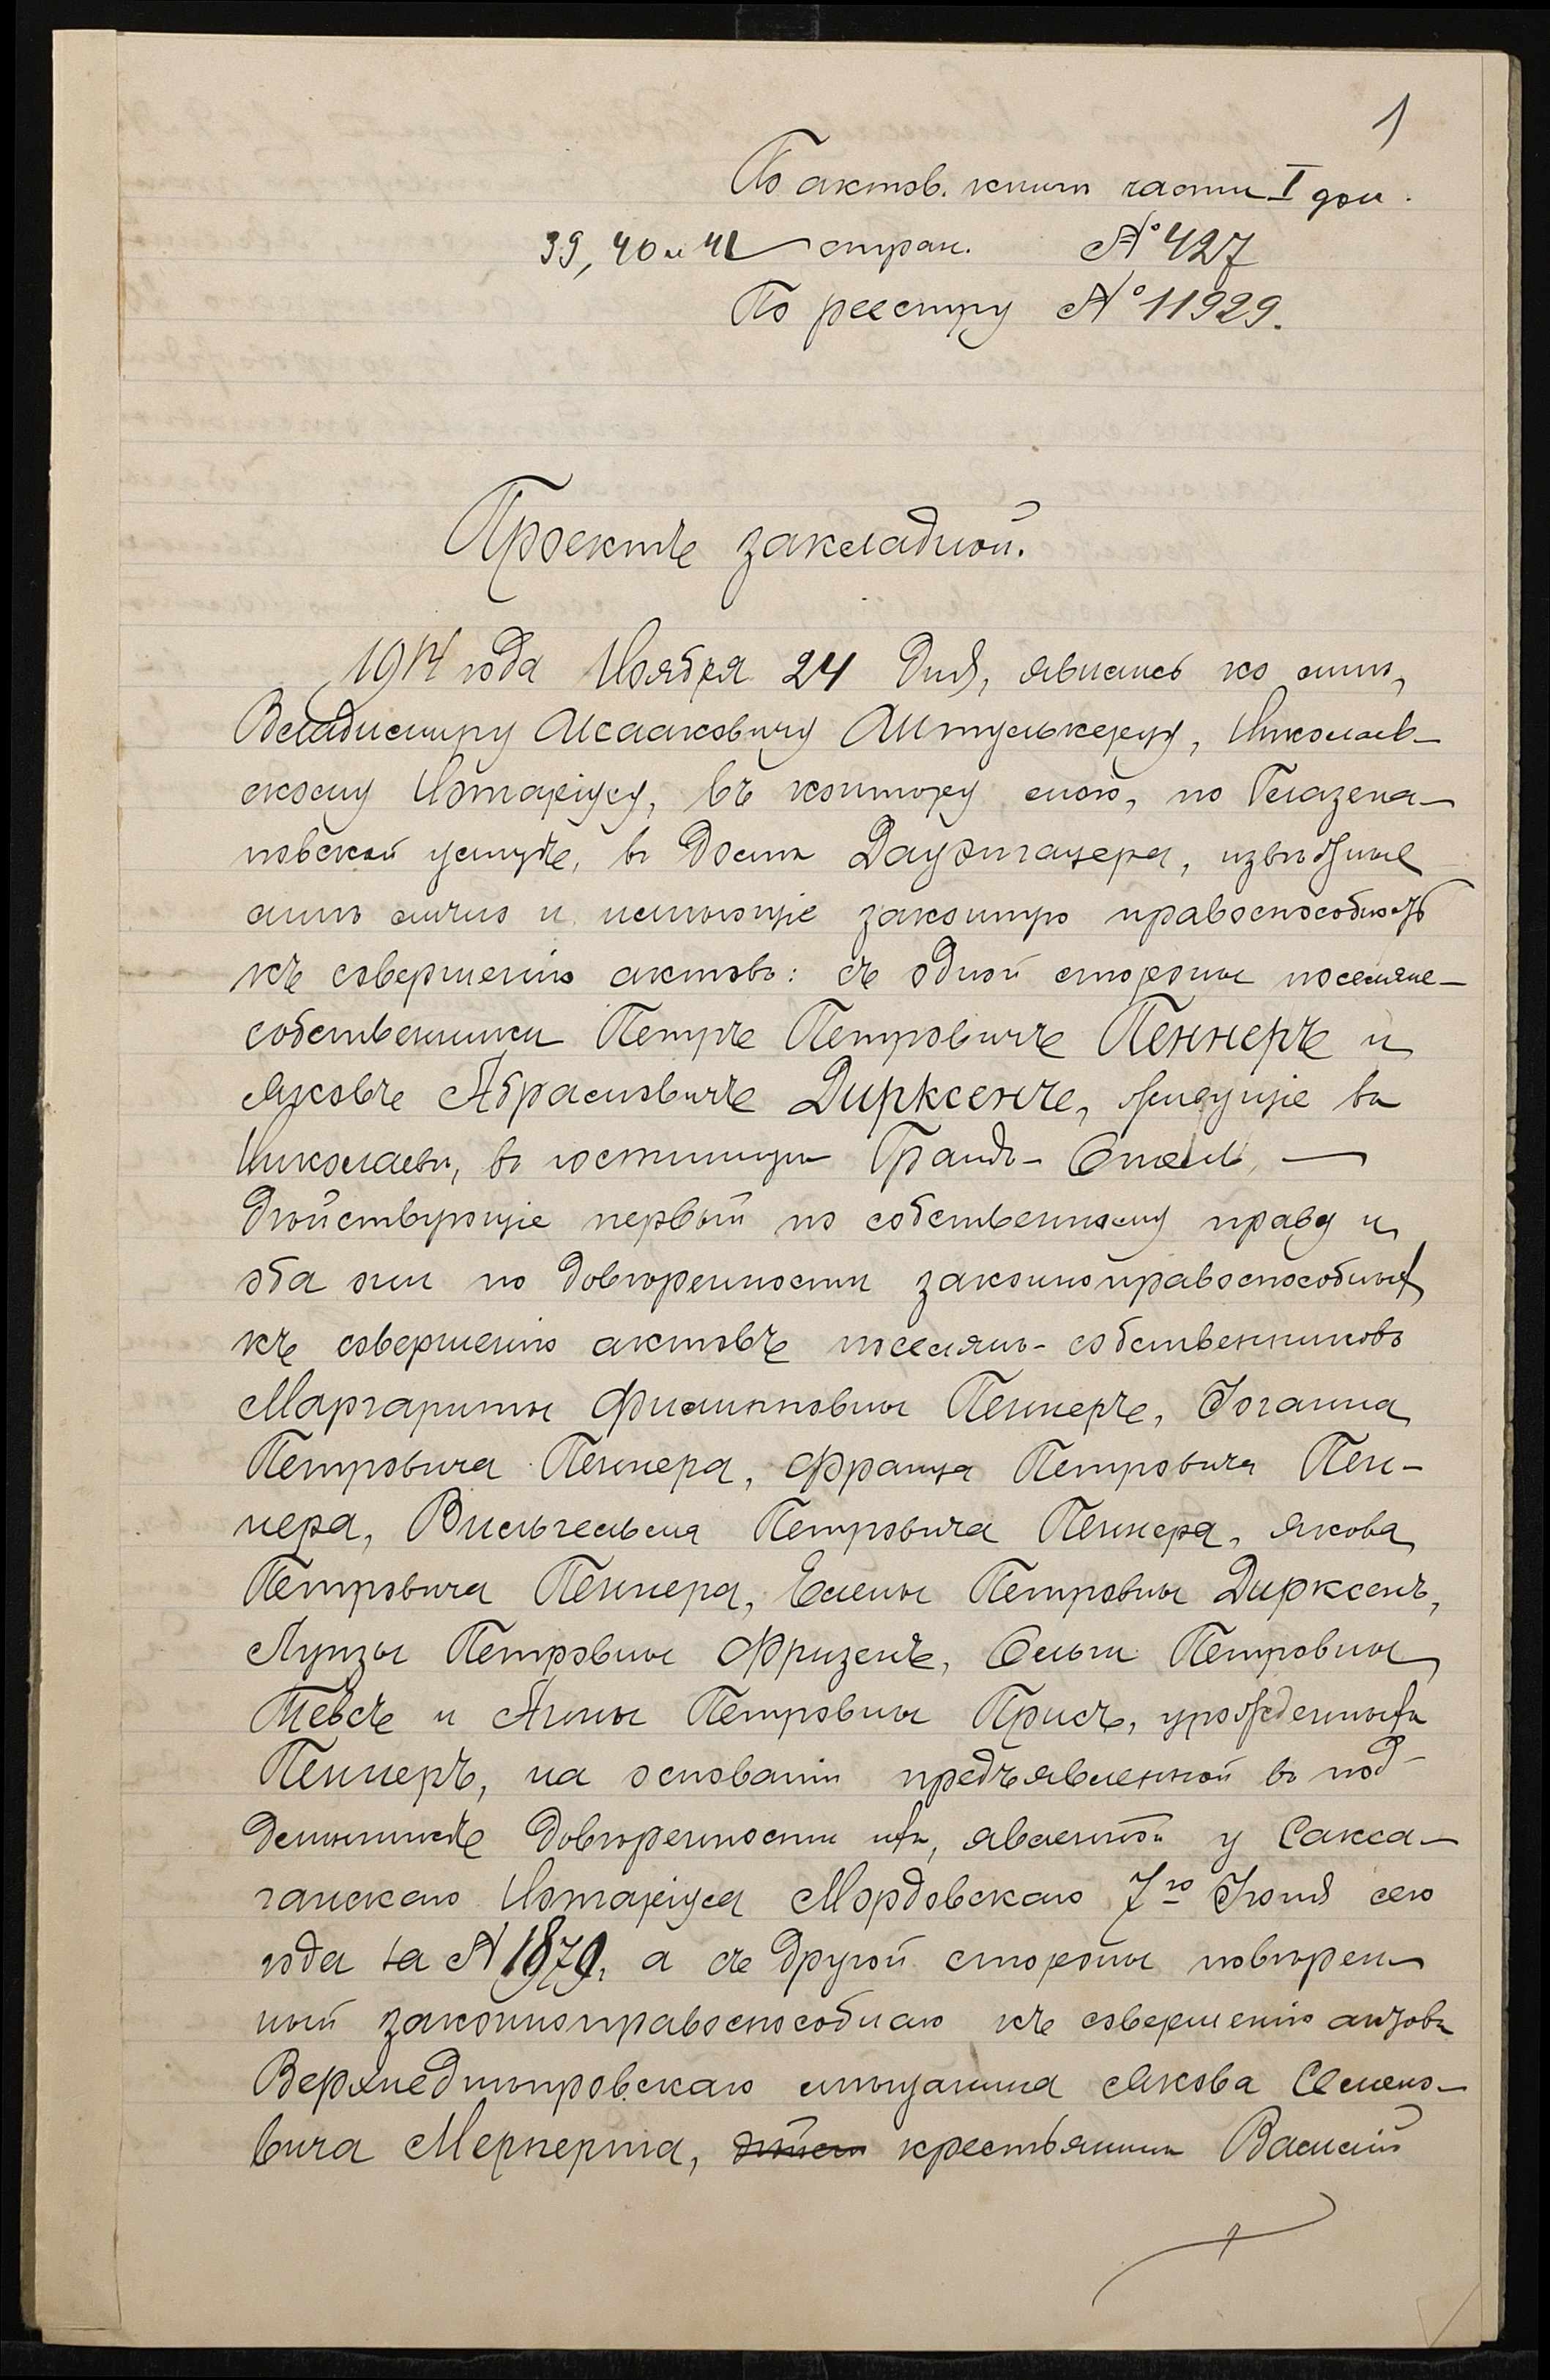 1
По актов. книгѣ части I дом.
39, 40 и 41 стран. № 427
По реестру № 11929.
Проектъ закладной.
1914 года Ноября 24 дня, явились ко мнѣ,
Владимиру Исааковичу Интулькеру, Николаев-
скому Нотаріусу, въ контору мою, по Глазена-
повской улицѣ, въ домѣ Даузнгацера, извѣстные
мнѣ лично и имѣющіе законную правоспособность
къ совершенію актовъ: съ одной стороны поселяне-
собственники Петръ Петровичъ Пеннеръ и
Яковъ Абрамовичъ Дирксенъ, живущіе въ
Николаевѣ, въ гостиницѣ Грандъ-Отель, —
дѣйствующіе первый по собственному праву и
оба они по довѣренности законноправоспособныхъ
къ совершенію актовъ поселянъ-собственниковъ
Маргариты Филипповны Пеннеръ, Іоганна
Петровича Пеннера, Франца Петровича Пен-
нера, Вильгельма Петровича Пеннера, Якова
Петровича Пеннера, Елены Петровны Дирксенъ,
Луизы Петровны Фризенъ, Ольги Петровны
Тевсъ и Анны Петровны Присъ, урожденныхъ
Пеннеръ, на основаніи предъявленной въ под-
линникѣ довѣренности ихъ, явленной у Сакса-
ганскаго Нотаріуса Мордовскаго 7го Іюня сего
года за № 1879, а съ другой стороны повѣрен-
ный законноправоспособнаго къ совершенію актовъ
Верхнеднѣпровскаго мѣщанина Якова Семено-
вича Мерперта, дѣйст крестьянинъ Василій